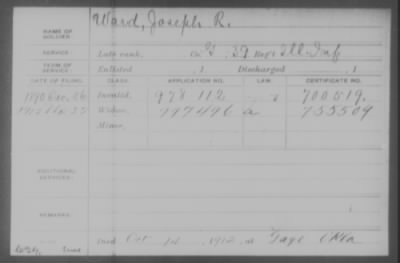 Ward, Joseph R.
NAME OF SOLDIER:
SERVICE: Late rank, Co. G, 39 Reg't Ill. Inf.
TERM OF SERVICE: Enlisted , 1 Discharged , 1
DATE OF FILING. CLASS. APPLICATION NO. LAW. CERTIFICATE NO.
1890 Invalid, 978 112 700 519.
Widow, 997496 a 755509
Minor,
ADDITIONAL SERVICES:
REMARKS:
Died Oct 1912, at Gage Okla